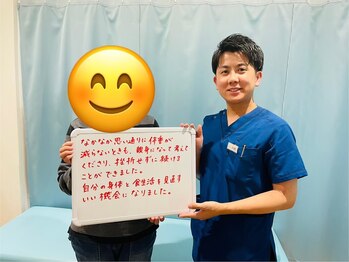 なかなか思い通りに体重が
減らないときも、親身になって考えて
くださり、挫折せずに続ける
ことができました。
自分の身体と食生活を見直す
いい機会になりました。